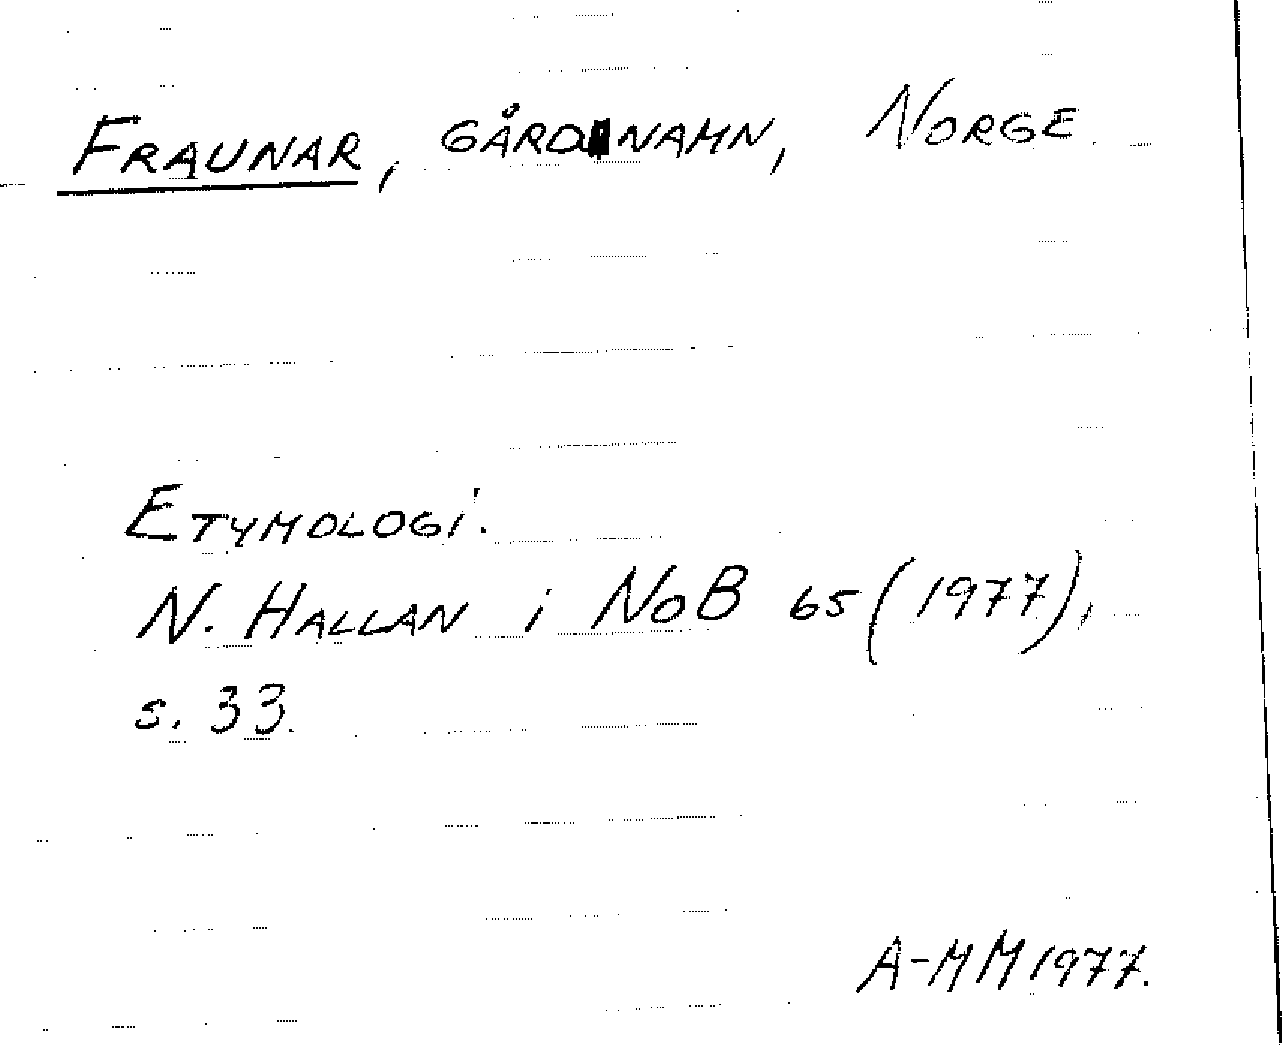 FRAUNAR, GÅRDNAMN, NORGE.
ETYMOLOGI.
N. HALLAN i NoB 65 (1977),
s. 33.
A-MM 1977.